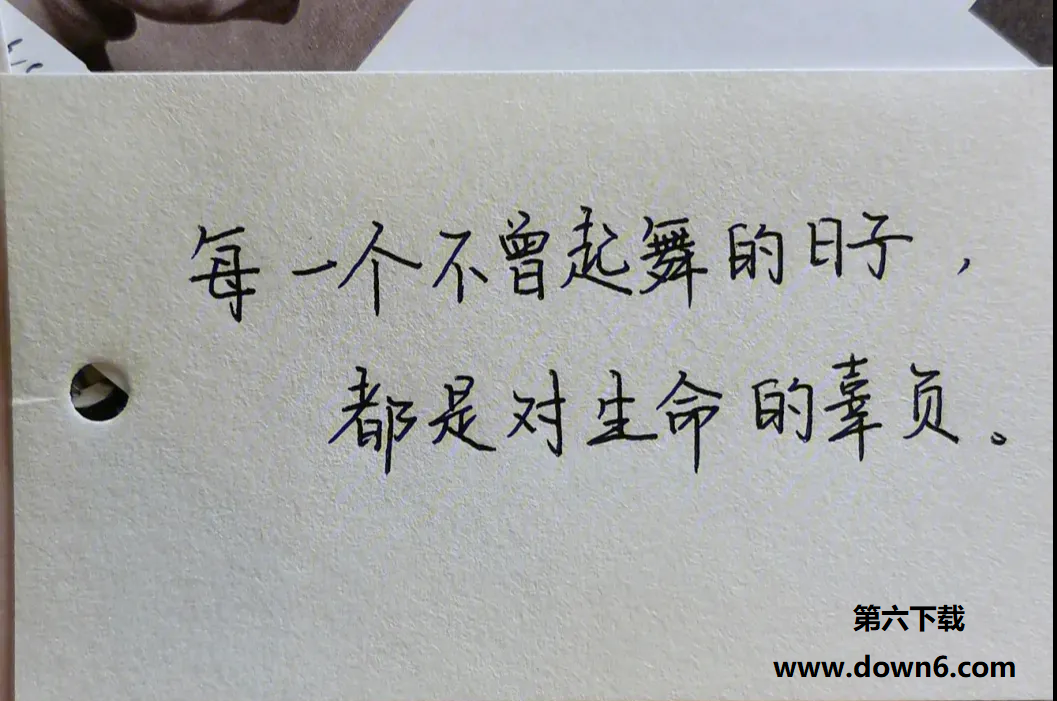 每一个不曾起舞的日子，
都是对生命的辜负。
第六下载
www.down6.com